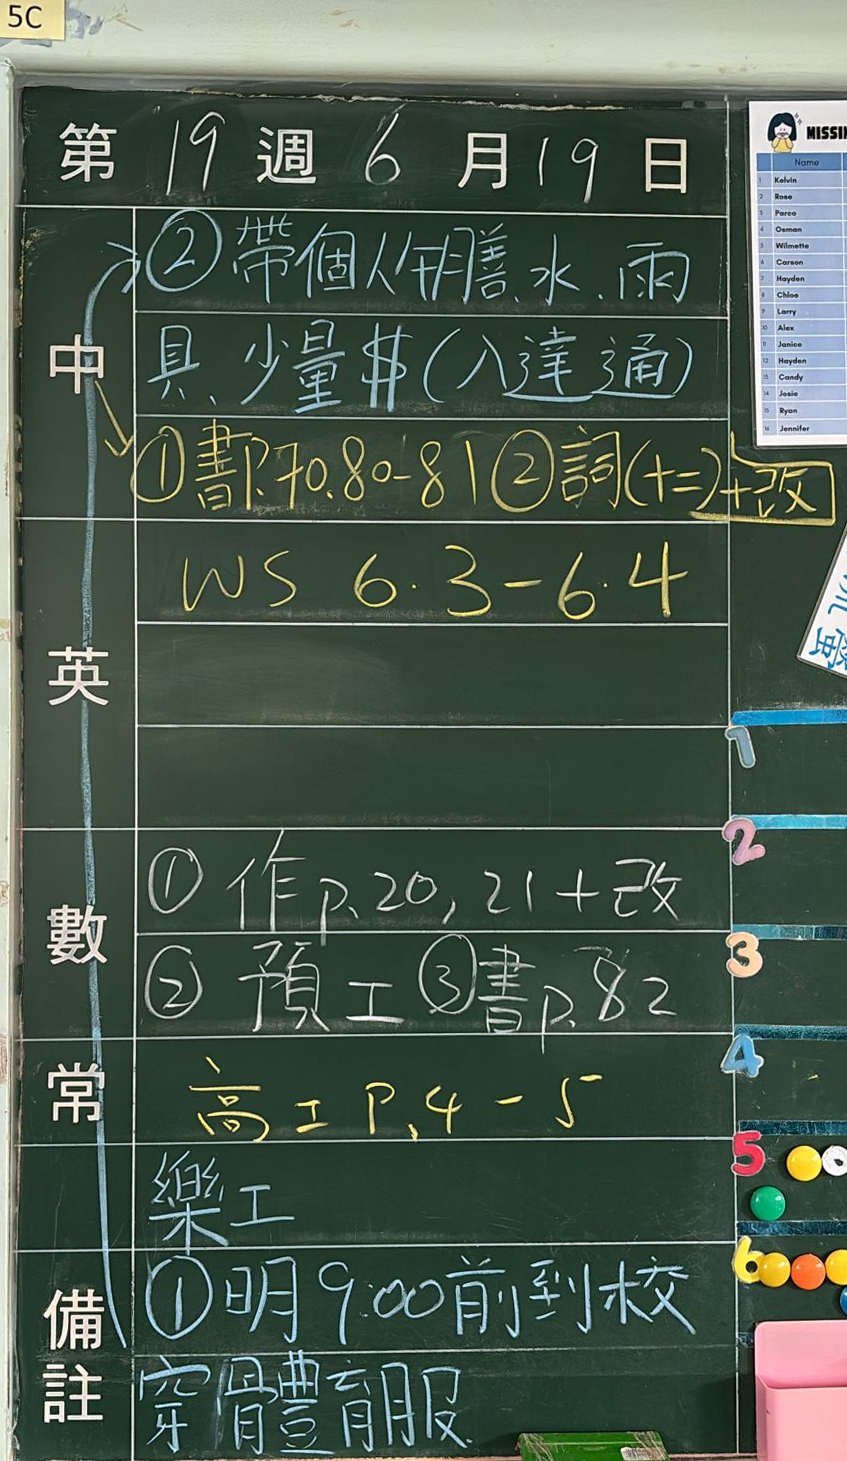 5C
第 19 週 6 月 19 日
中
②帶個人午膳、水、雨
具、少量$(八達通)
①書P.70.80-81②詞(十二)+改
英
WS 6.3-6.4
數
①作p.20, 21+改
②預工③書p.82
常
高工P.4-5
樂工
備註
①明9:00前到校
穿體育服
Name
1 Kelvin
2 Rose
3 Parco
4 Osman
5 Wilmette
6 Carson
7 Hayden
8 Chloe
9 Larry
10 Alex
11 Janice
12 Hayden
13 Candy
14 Josie
15 Ryan
16 Jennifer
1
2
3
4
5
6